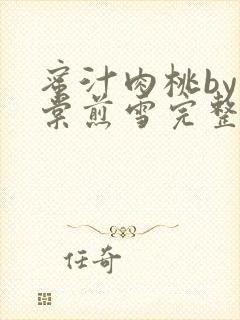 蜜汁肉桃by
棠煎雪完整
任奇